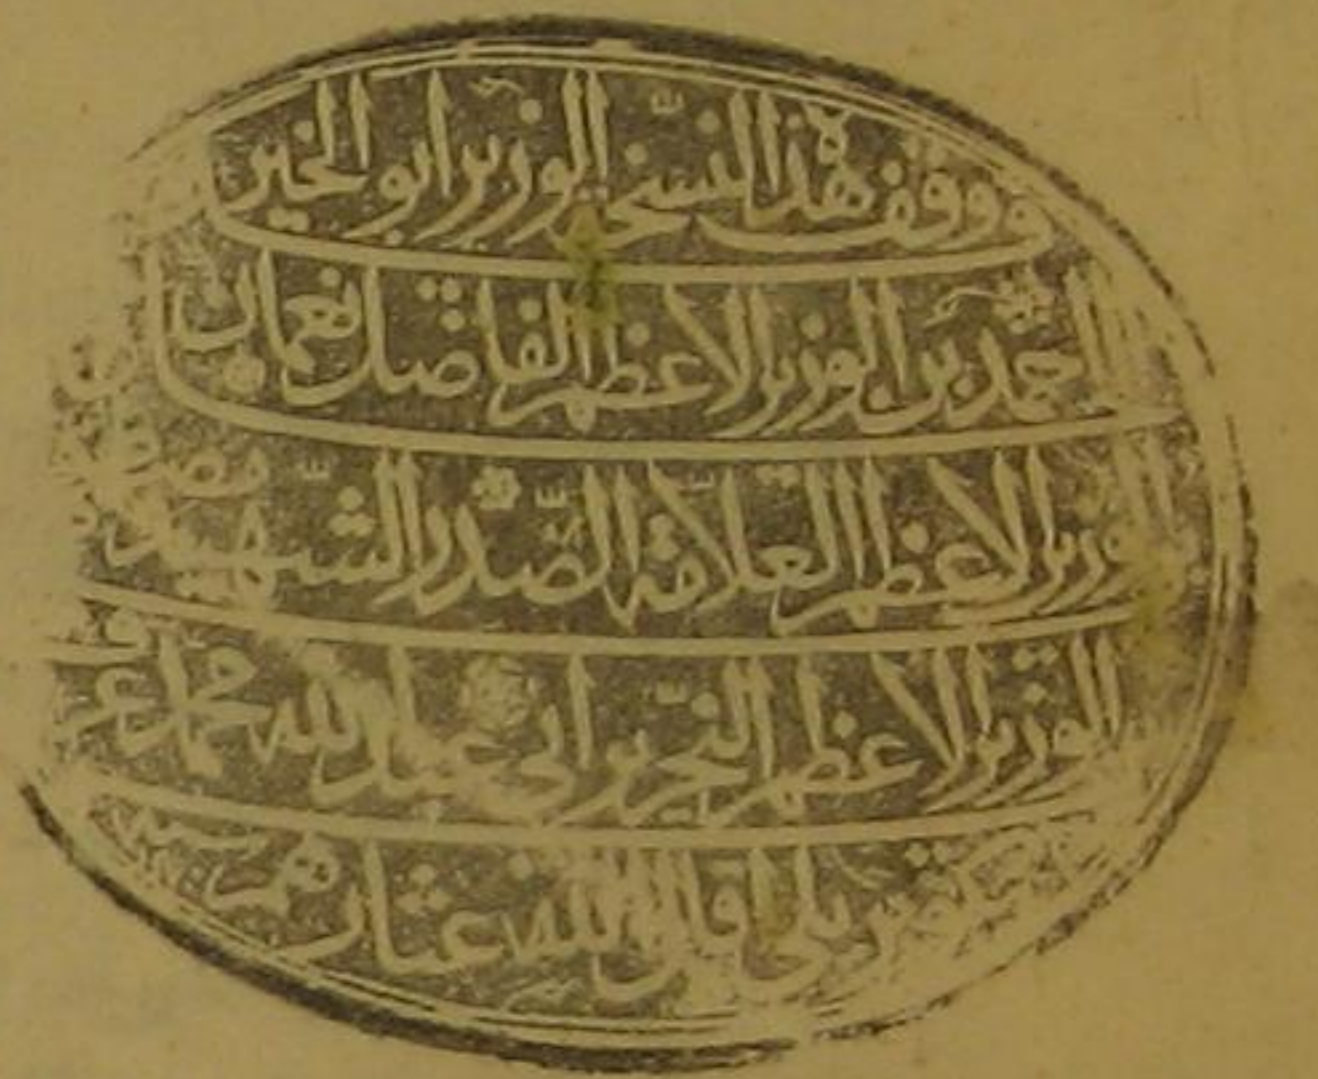 ووقف هذا النسخة الوزير ابو الخير
احمد بن الوزير الاعظم الفاضل نعمان
الوزير الاعظم العلامة الصدر الشهيد مصطفى
الوزير الاعظم النحرير ابي عبد الله محمد عرف
بكوپريلي اقال الله عثارهم